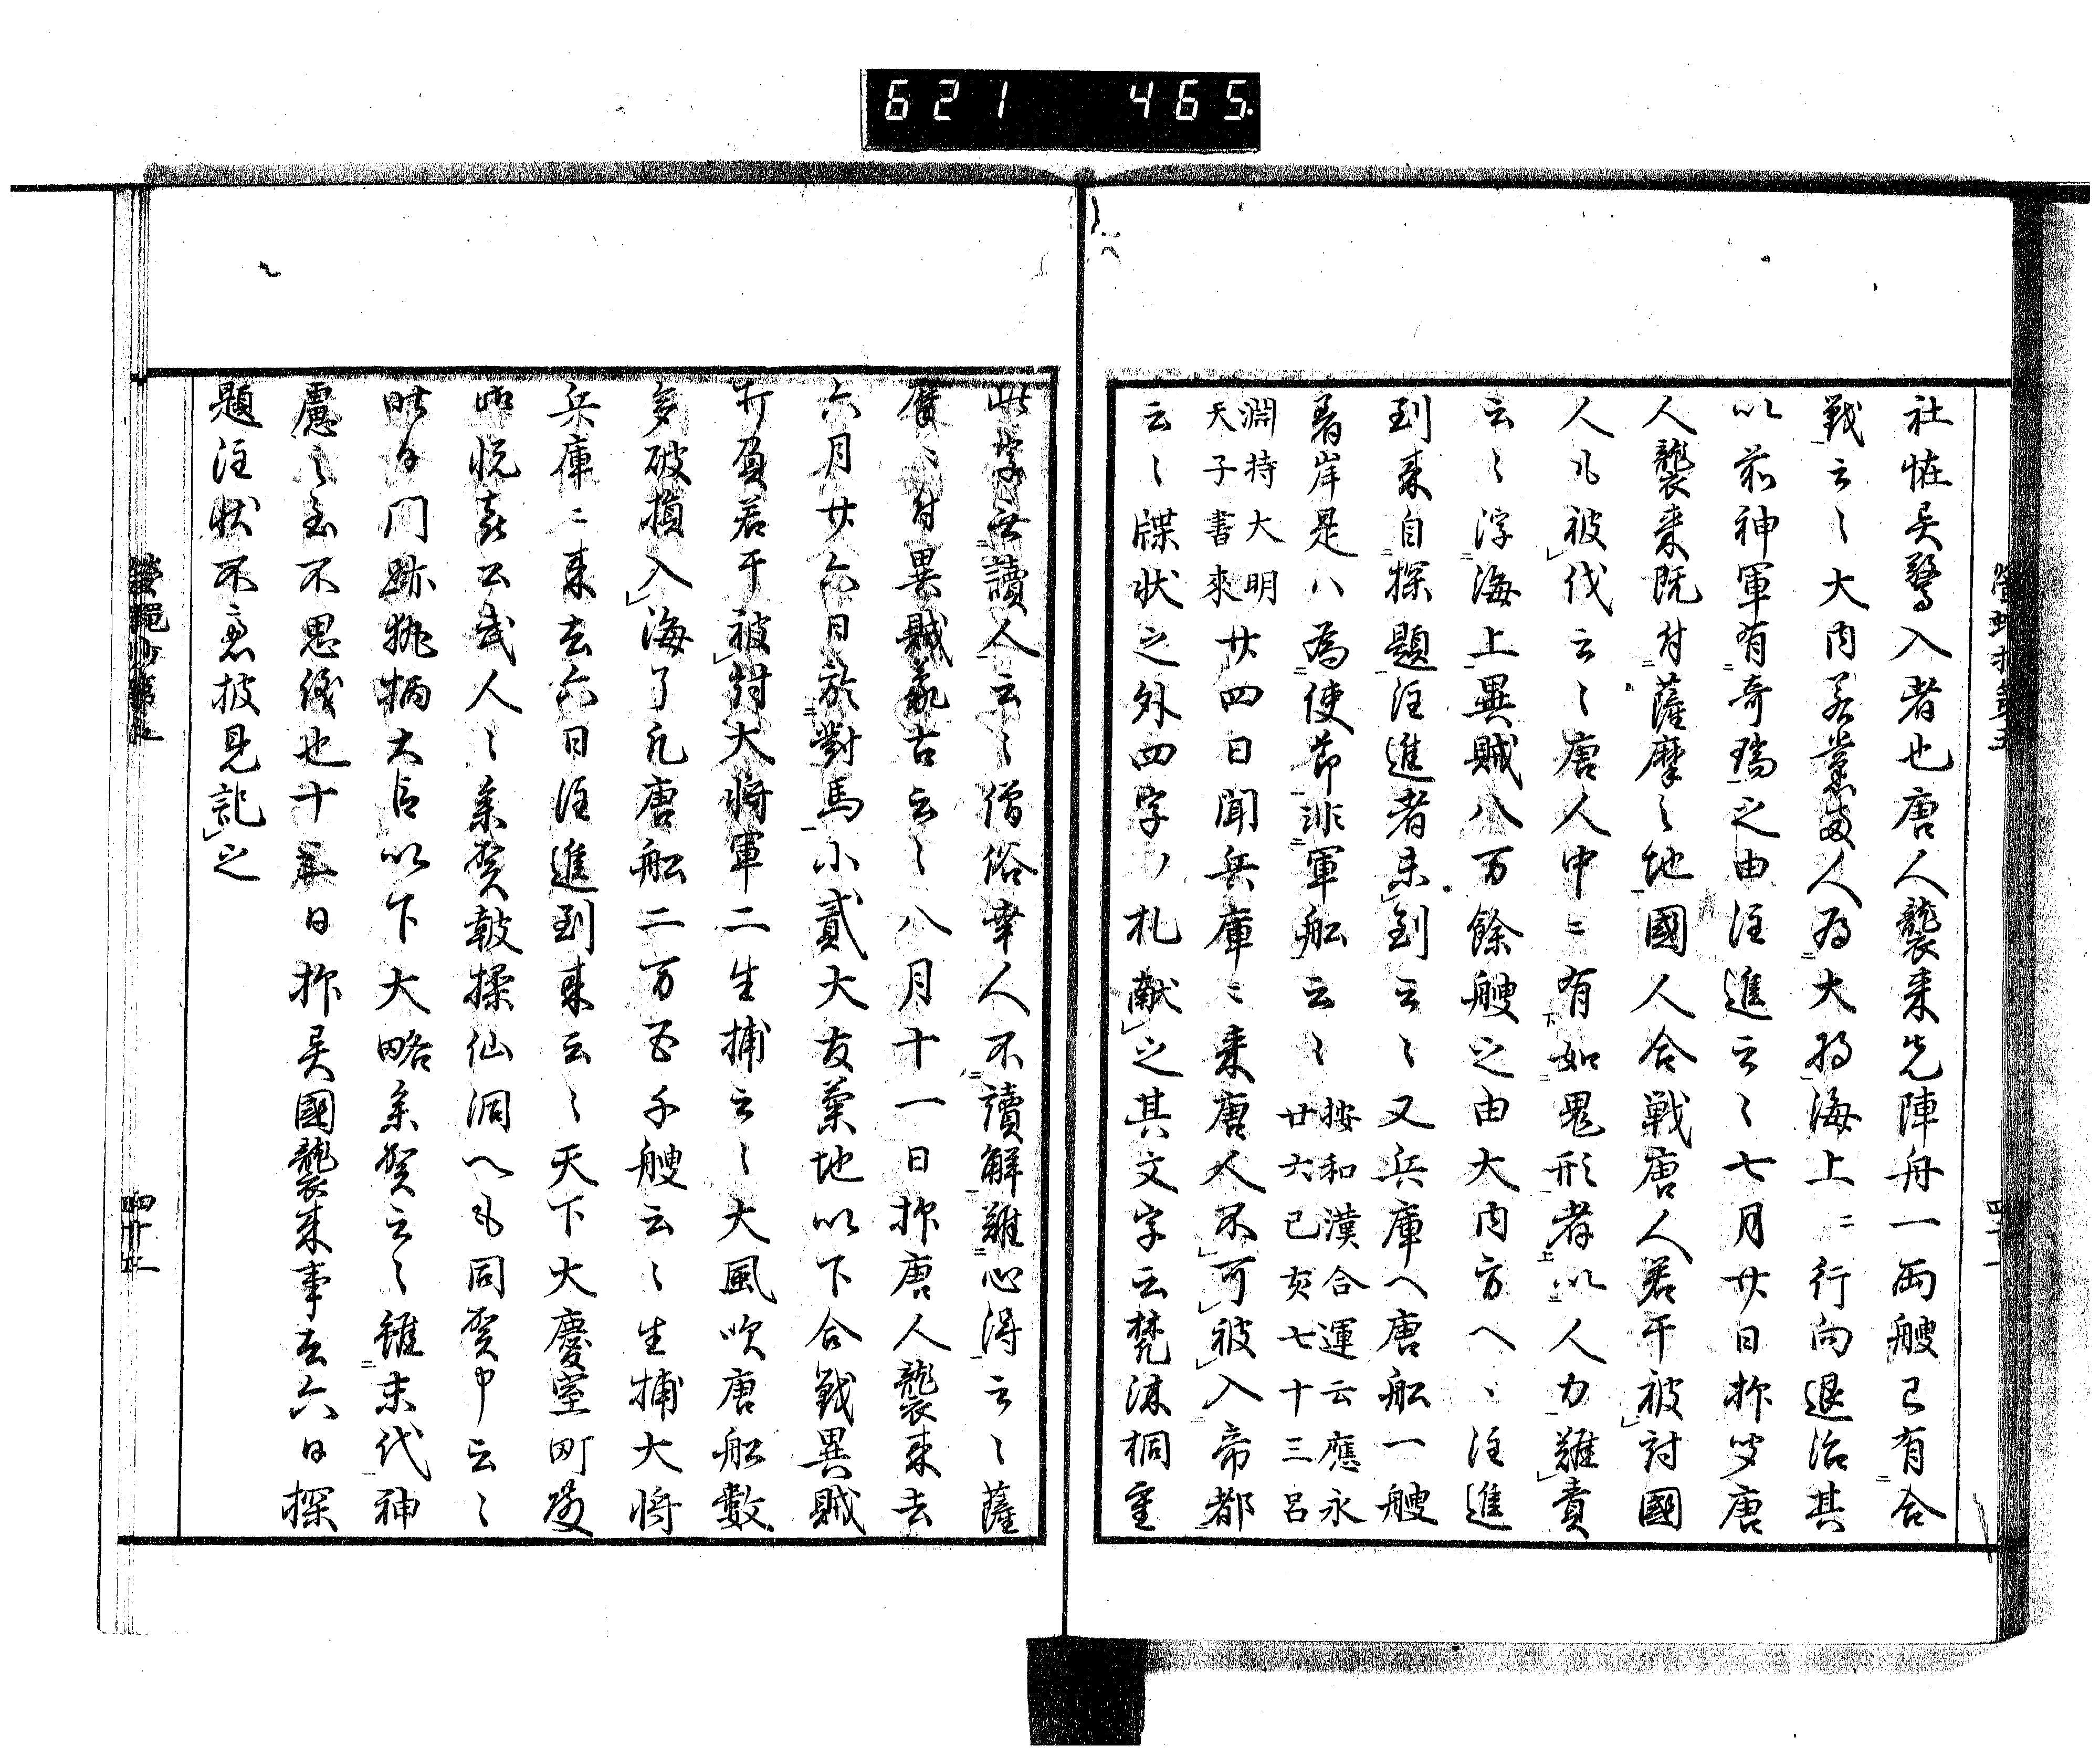 621 465
社怪異驚入者也唐人襲来先陣舟一両艘已有合
戦云々大内若黨両人為大将海上ニ行向退治其
以前神軍有奇瑞之由注進云々七月廿日抑聞唐
人襲来既付薩摩之地國人合戦唐人若干被討國
人凡被伐云々唐人中ニ有如鬼形者以人力難責
云々浮海上異賊八万餘艘之由大内方ヘ注進
到来自探題注進者未到云々又兵庫ヘ唐船一艘
着岸是ハ為使節非軍船云々按和漢合運云應永
廿六己亥七十三呂
淵持大明
天子書來廿四日聞兵庫ニ来唐人不可被入帝都
云々牒状之外四字ノ札献之其文字云梵沫桐重
此字無讀人云々僧俗幸人不讀解難心得云々薩
摩ニ付異賊蒙古云々八月十一日抑唐人襲来去
六月廿六日於對馬小貳大友菊地以下合戦異賊
打負若干被討大将軍二生捕云々大風吹唐船数
多破損入海了凡唐船二万五千艘云々生捕大将
兵庫ニ来去六日注進到来云々天下大慶室町殿
悦喜公武人々参賀鼓操仙洞ヘも同賀申云々
門跡執柄大臣以下大略参賀云々雖末代神
慮之至不思儀也十三日抑異國襲来事去六日探
題注状不慮披見記之
螢蠅抄第五
四十一
螢蠅抄第五
四十二